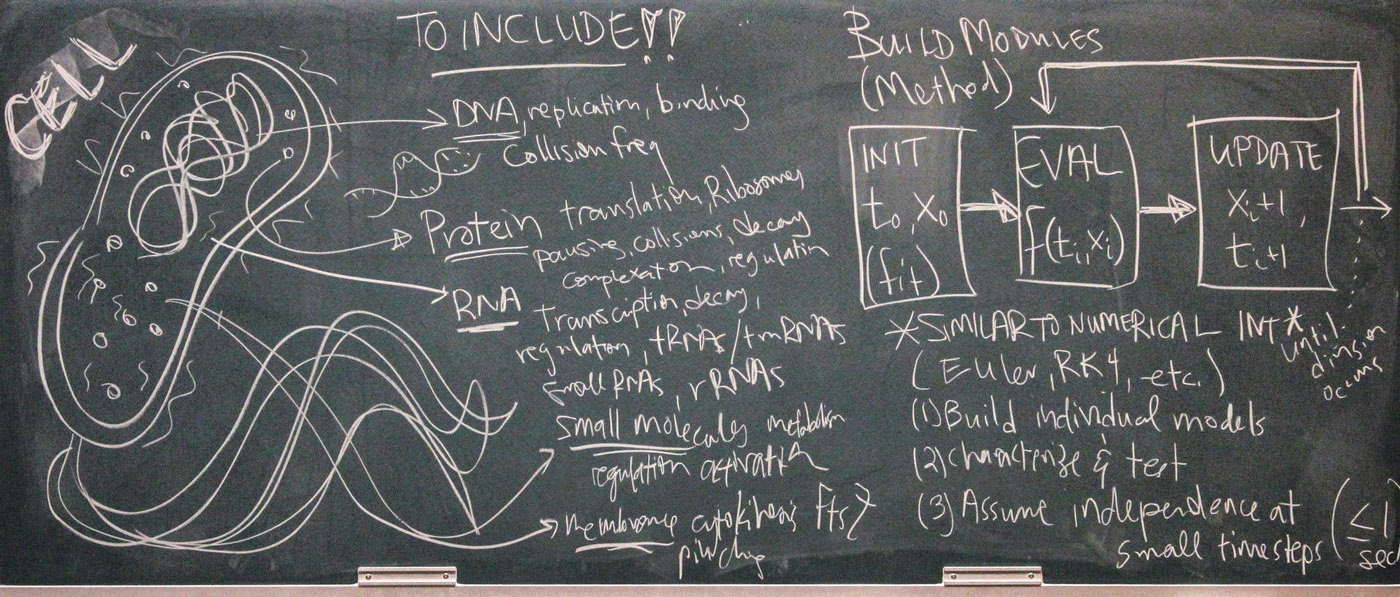 CELL
TO INCLUDE!!
DNA, replication, binding
Collision freq
Protein translation, Ribosomes
pausing, collisions, decay
complexation, regulation
RNA Transcription, decay,
regulation, tRNAs/tmRNAs
small RNAs, rRNAs
small molecules metabolism
regulation activation
membrane cytokinesis ftsZ
pinching
BUILD MODULES
(Method)
INIT
t0, x0
(fit)
EVAL
f(ti, xi)
UPDATE
xi+1,
ti+1
*SIMILAR TO NUMERICAL INT*
(Euler, RK4, etc.)
until
division
occurs
(1) Build individual models
(2) characterize & test
(3) Assume independence at
small timesteps (≤1
sec